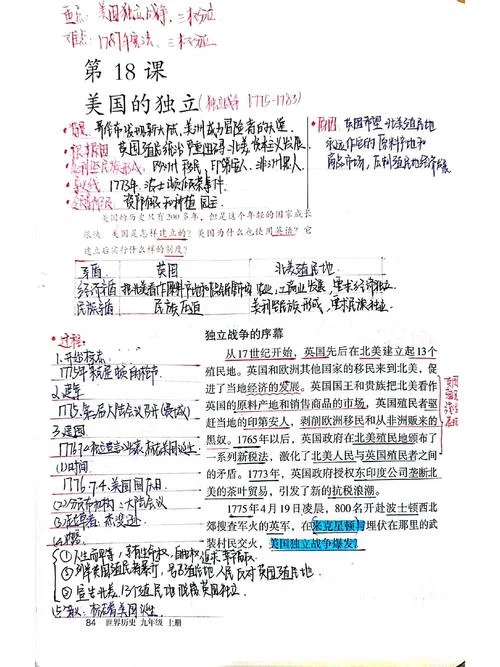 重点：美国独立战争、三权分立
难点：1787年宪法、三权分立
第 18 课
美国的独立(独立战争 1775-1783)
·背景：哥伦布发现新大陆,美洲成为冒险者的天堂
·根本原因：英国殖民统治严重阻碍北美资本主义发展。
·美利坚民族形成：欧洲移民、印第安人、非洲黑人
·导火线：1773年波士顿倾茶事件
资产阶级和种植园主
·原因：英国希望北美殖民地
永远作它的原料产地和
商品市场,压制殖民地经济发展
美国的历史只有200多年，但是这个年轻的国家成长
很快。美国是怎样建立的？美国为什么也使用英语？它
建立后实行什么样的制度？
矛盾 英国 北美殖民地
经济矛盾 把北美看作原料产地和商品销售市场 农业、工商业发展,要求经济独立
民族矛盾 民族压迫 美利坚民族形成,要求民族独立
·过程：
1.开始标志：
1775年莱克星顿的枪声
2.建军
1775.第二届大陆会议召开(费城)
3.建国
(1)时间
1776.7.4.美国国庆日
(2)发布机构：大陆会议
(3)起草者：杰斐逊
独立战争的序幕
从17世纪开始，英国先后在北美建立起13个
殖民地。英国和欧洲其他国家的移民来到北美，促
进了当地经济的发展。英国国王和贵族把北美看作
英国的原料产地和销售商品的市场，英国殖民者驱
赶当地的印第安人，剥削欧洲移民和从非洲贩来的
黑奴。1765年以后，英国政府在北美殖民地颁布了
一系列新税法，激化了北美人民与英国殖民者之间
的矛盾。1773年，英国政府授权东印度公司垄断北
美的茶叶贸易，引发了新的抗税浪潮。
1775年4月19日凌晨，800名开赴波士顿西北
郊搜查军火的英军，在来克星顿与埋伏在那里的武
装村民交火，美国独立战争爆发。
①人生而平等,享有生命权、自由权、追求幸福权
②列举英国殖民者暴行,号召殖民地人民反对英国殖民地
③宣告北美13个殖民地脱离英国独立
标志着美国诞生
84 世界历史 九年级 上册